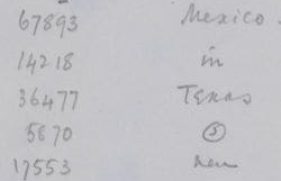 67893 Mexico.
14218 in
36477 Texas
5670 ⑤
17553 new